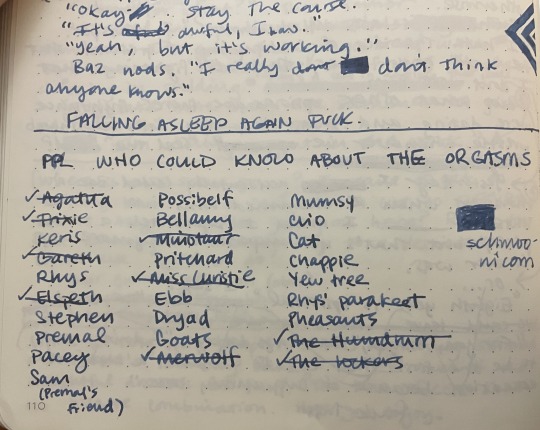 "Okay. Stay the course."
"It's awful, I know."
"Yeah, but it's working."
Baz nods. "I really don't don't think
anyone knows."
FALLING ASLEEP AGAIN FUCK.
PPL WHO COULD KNOW ABOUT THE ORGASMS
✓Agatha Possibelf Mumsy
✓Trixie Bellamy Clio
Keris ✓Minotaur Cat
✓Gareth Pritchard Chappie
Rhys ✓Miss Christie Yew tree
✓Elspeth Ebb Rhys' parakeet
Stephen Dryad Pheasants
Premal Goats ✓The Humdrum
Pacey ✓Merwolf ✓The lockers
Sam
(Premal's
friend)
schmoo-
nicorn
110